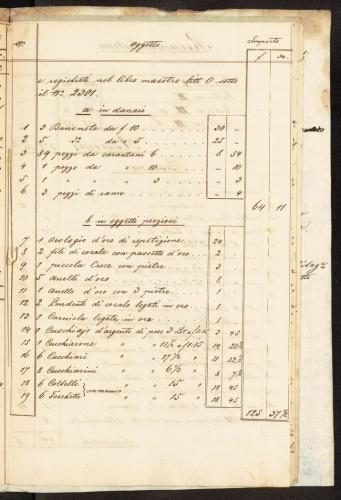 No. Oggetto Importo
f x.
e registrati nel libro maestro lett O sotto
il No. 2301.
a in danari
1 3 Banconote da f 10 30 –
2 5 do da " 5 25 –
3 89 pezzi da carantani 6 8 54
4 1 pezzo da " 10 – 10
5 1 " " 3 – 3
6 3 pezzi di rame – 4
64 11
b in oggetti preziosi
7 1 Orologio d'oro di repetizione 24
8 2 fili di corale con passetto d'oro 2
9 1 piccola Croce con pietre 3
10 5 Anelli d'oro 8
11 1 Anello d'oro con 3 pietre 1
12 2 Pendenti di coralo legati in oro 1
13 1 Corniola legata in oro 1
14 1 Cucchiajo d'argento di peso 3 Lot a f 1:15 3 45
15 1 Cucchiarone " " 11½ a f 1:15 14 22½
16 6 Cucchiari " " 17½ 21 52½
17 8 Cucchiarini " " 6½ " 8 7½
18 6 Coltelli " 15 " 18 45
19 6 Forchette " 15 " 18 45
125 37½